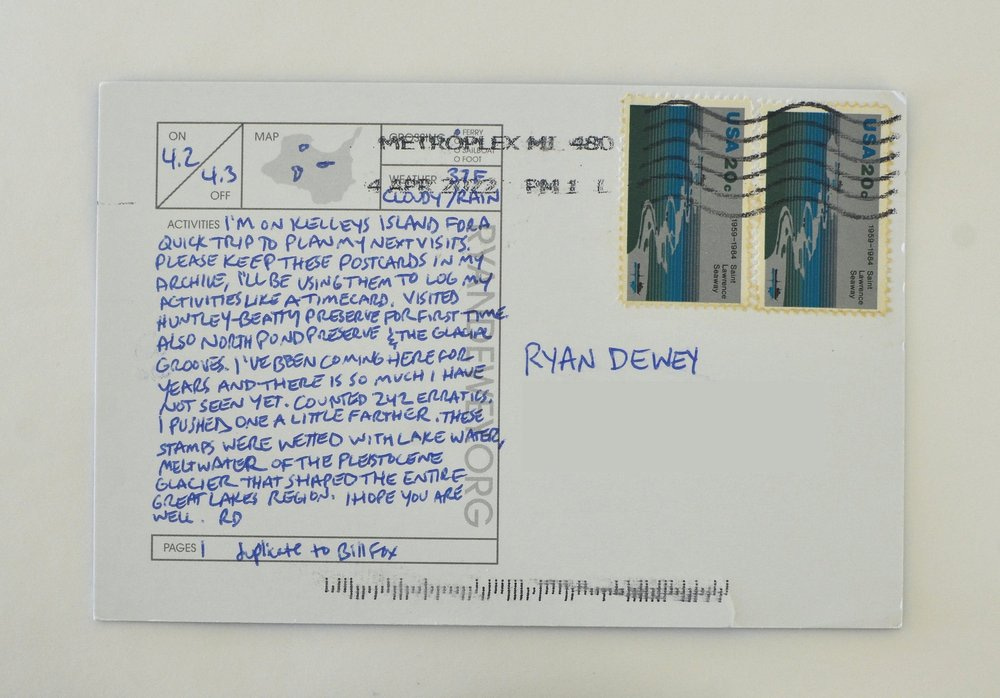 ON
4.2
4.3
OFF
MAP
CROSSING
FERRY
SAILBOAT
FOOT
WEATHER 37F
CLOUDY/RAIN
METROPLEX MI 480
4 APR 2022 PM 1 L
USA 20c
1959-1984 Saint
Lawrence
Seaway
USA 20c
1959-1984 Saint
Lawrence
Seaway
ACTIVITIES I'M ON KELLEYS ISLAND FOR A
QUICK TRIP TO PLAN MY NEXT VISITS.
PLEASE KEEP THESE POSTCARDS IN MY
ARCHIVE, I'LL BE USING THEM TO LOG MY
ACTIVITIES LIKE A TIMECARD. VISITED
HUNTLEY-BEATTY PRESERVE FOR FIRST TIME
ALSO NORTH POND PRESERVE & THE GLACIAL
GROOVES. I'VE BEEN COMING HERE FOR
YEARS AND THERE IS SO MUCH I HAVE
NOT SEEN YET. COUNTED 242 ERRATICS.
I PUSHED ONE A LITTLE FARTHER. THESE
STAMPS WERE WETTED WITH LAKE WATER,
MELTWATER OF THE PLEISTOCENE
GLACIER THAT SHAPED THE ENTIRE
GREAT LAKES REGION. I HOPE YOU ARE
WELL. RD
RYANDEWEY.ORG
PAGES 1 duplicate to Bill Fox
RYAN DEWEY